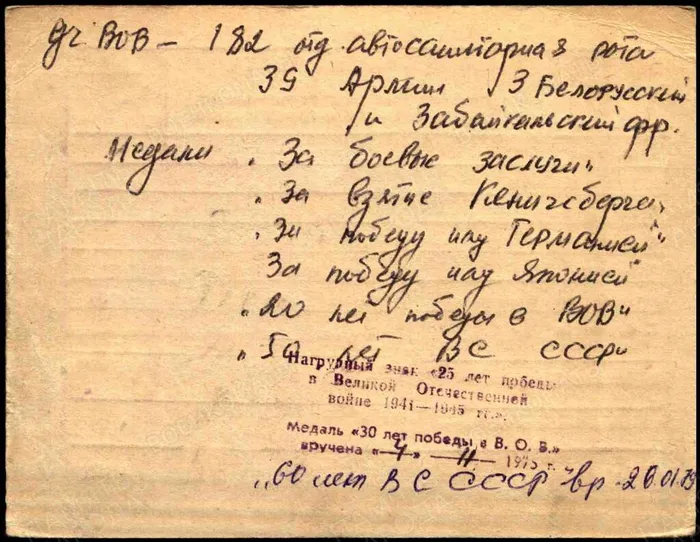 Уч. ВОВ – 182 отд. автосанитарная рота
39 Армии 3 Белорусский
и Забайкальский фр.
Медали „За боевые заслуги"
„За взятие Кенигсберга"
„За победу над Германией"
За победу над Японией"
„20 лет победы в ВОВ"
„50 лет ВС СССР"
Нагрудный знак «25 лет победы
в Великой Отечественной
войне 1941—1945 гг.».
Медаль «30 лет победы в В. О. В.»
вручена «4» 11 1975 г.
„60 лет ВС СССР" вр. 26.01.79